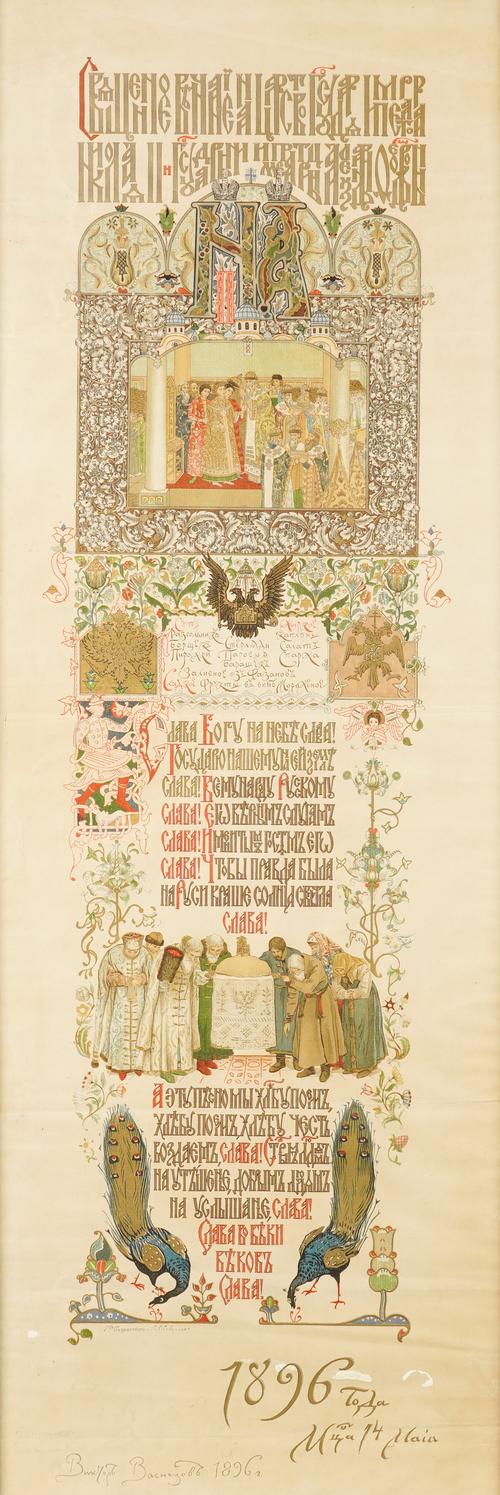 СВѦЩЕННОЕ ВѢНЧАНIЕ НА ЦАРСТВО ГОСУДАРѦ IМПЕРАТОРА
НИКОЛАѦ II И ГОСУДАРЫНИ ИМПЕРАТРИЦЫ АЛЕКСАНДРЫ ѲЕОДОРОВНЫ
Н А
Супъ
Разсольникъ Каплунъ
Борщокъ Стерляди Салатъ
Пирожки Паровыя Спаржа
Барашекъ
Заливное изъ Фазановъ
Фрукты въ винѣ Мороженое
СЛАВА БОГУ НА НЕБѢ СЛАВА!
ГОСУДАРЮ НАШЕМУ НА СЕЙ ЗЕМЛѢ
СЛАВА! ВСЕМУ НАРОДУ РУСКОМУ
СЛАВА! ЕГО ВѢРНЫМЪ СЛУГАМЪ
СЛАВА! ИМЕНИТЫМ ГОСТЯМЪ ЕГО
СЛАВА! ЧТОБЫ ПРАВДА БЫЛА
НА РУСИ КРАШЕ СОЛНЦА СВѢТЛА
СЛАВА!
А ЭТУ ПѢСНЮ МЫ ХЛѢБУ ПОЕМЪ,
ХЛѢБУ ПОЕМЪ, ХЛѢБУ ЧЕСТЬ
ВОЗДАЕМЪ, СЛАВА! СТАРЫМЪ ЛЮДЯМЪ
НА УТѢШЕНЬЕ, ДОБРЫМЪ ЛЮДЯМЪ
НА УСЛЫШАНЬЕ, СЛАВА!
СЛАВА ВО ВѢКИ
ВѢКОВЪ
СЛАВА!
1896 Года
Мца 14 Маiа
Викторъ Васнецовъ 1896 г.